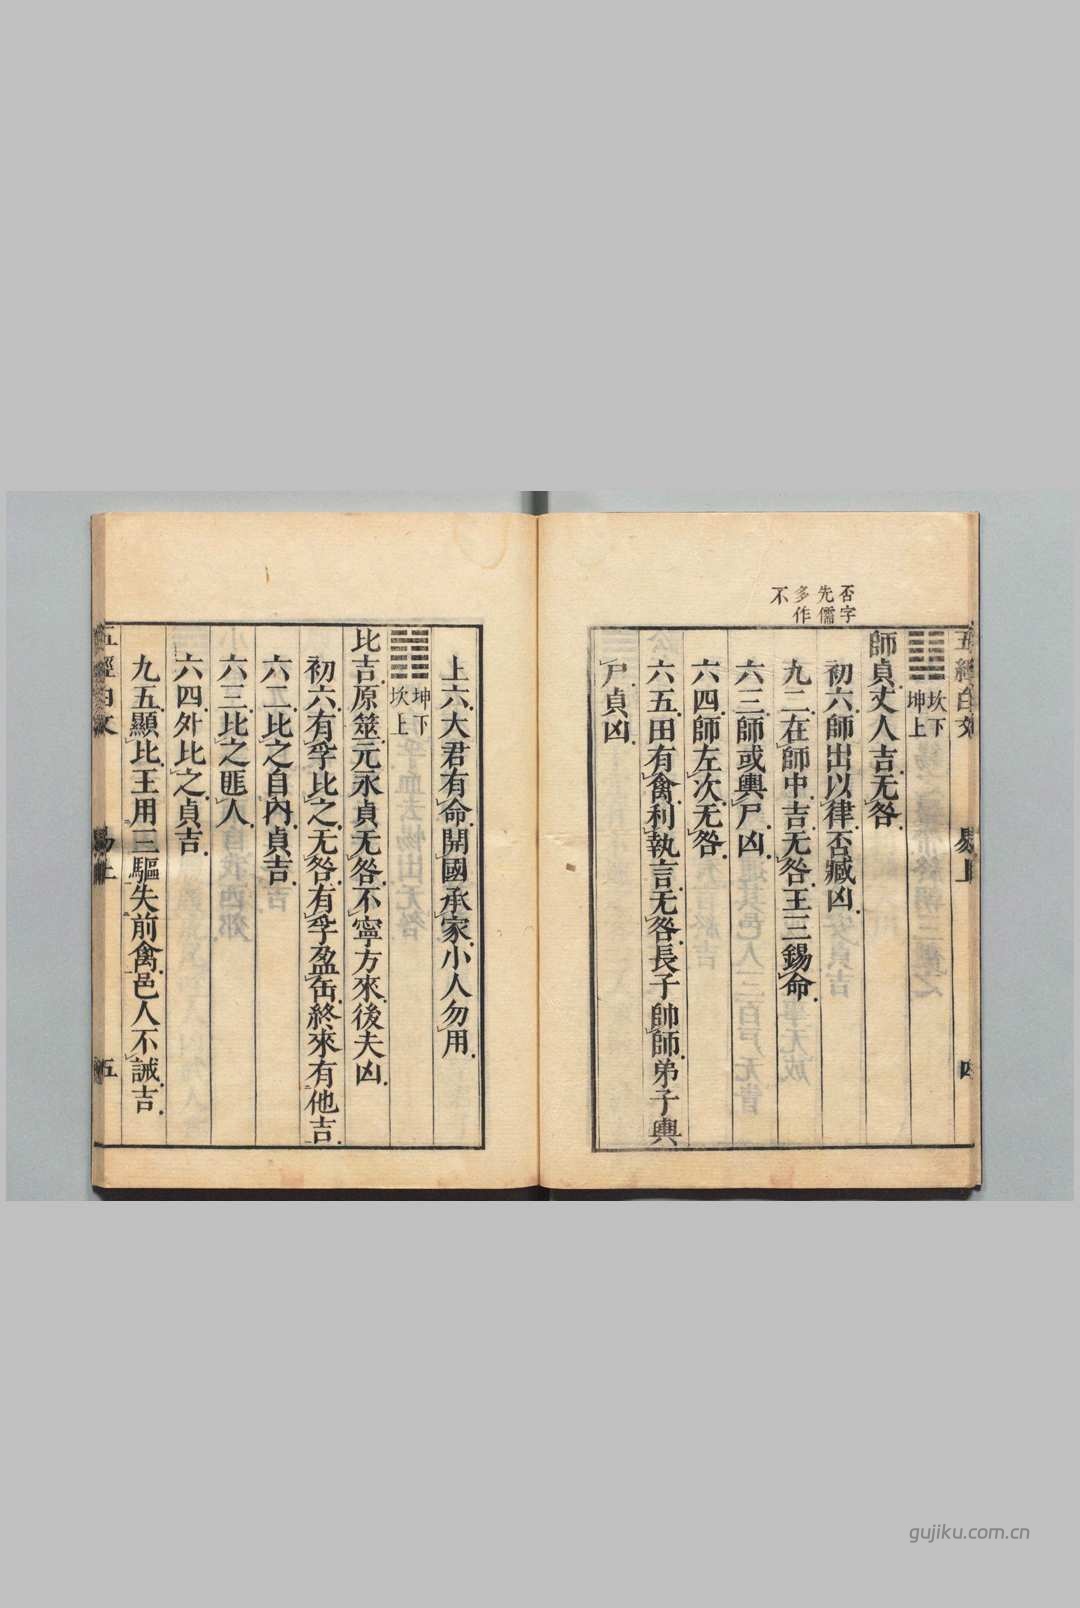 否字
先儒
多作
不
五經白文
易上
四
坎下
坤上
師貞丈人吉无咎
初六師出以律否臧凶
九二在師中吉无咎王三錫命
六三師或輿尸凶
六四師左次无咎
六五田有禽利執言无咎長子帥師弟子輿
尸貞凶
上六大君有命開國承家小人勿用
坤下
坎上
比吉原筮元永貞无咎不寧方來後夫凶
初六有孚比之无咎有孚盈缶終來有他吉
六二比之自內貞吉
六三比之匪人
六四外比之貞吉
九五顯比王用三驅失前禽邑人不誡吉
五經白文
易上
五
gujiku.com.cn